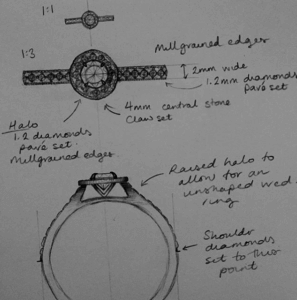 1:1
1:3
Millgrained edges
2mm wide
1.2mm diamonds
pavé set
Halo
1.2 diamonds
pavé set.
Millgrained edges.
4mm central stone
Claw set
Raised halo to
allow for an
unshaped wed.
ring
Shoulder
diamonds
set to this
point